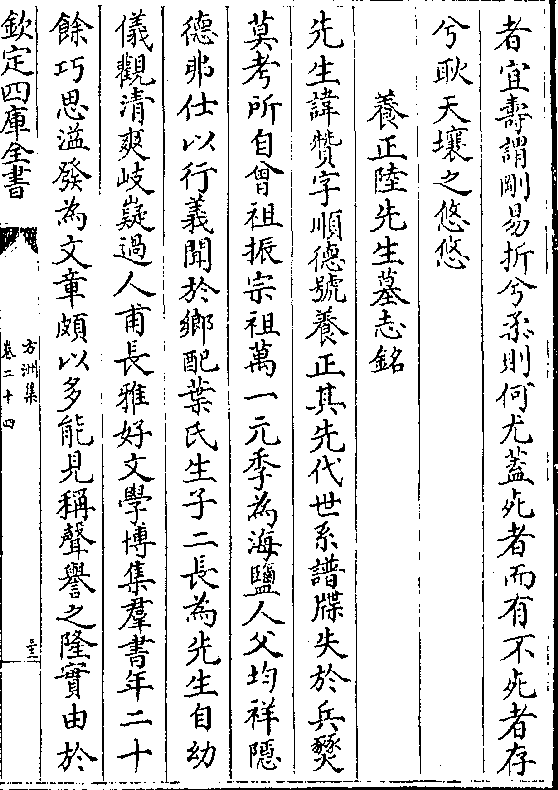 者宜壽謂剛易折兮柔則何尤蓋死者而有不死者存
兮耿天壤之悠悠
養正陸先生墓志銘
先生諱贊字順德號養正其先代世系譜牒失於兵燹
莫考所自曾祖振宗祖萬一元季為海鹽人父均祥隱
德弗仕以行義聞於鄉配葉氏生子二長為先生自幼
儀觀清爽岐嶷過人甫長雅好文學博集羣書年二十
餘巧思溢發為文章頗以多能見稱聲譽之隆實由於
欽定四庫全書
方洲集
卷二十四